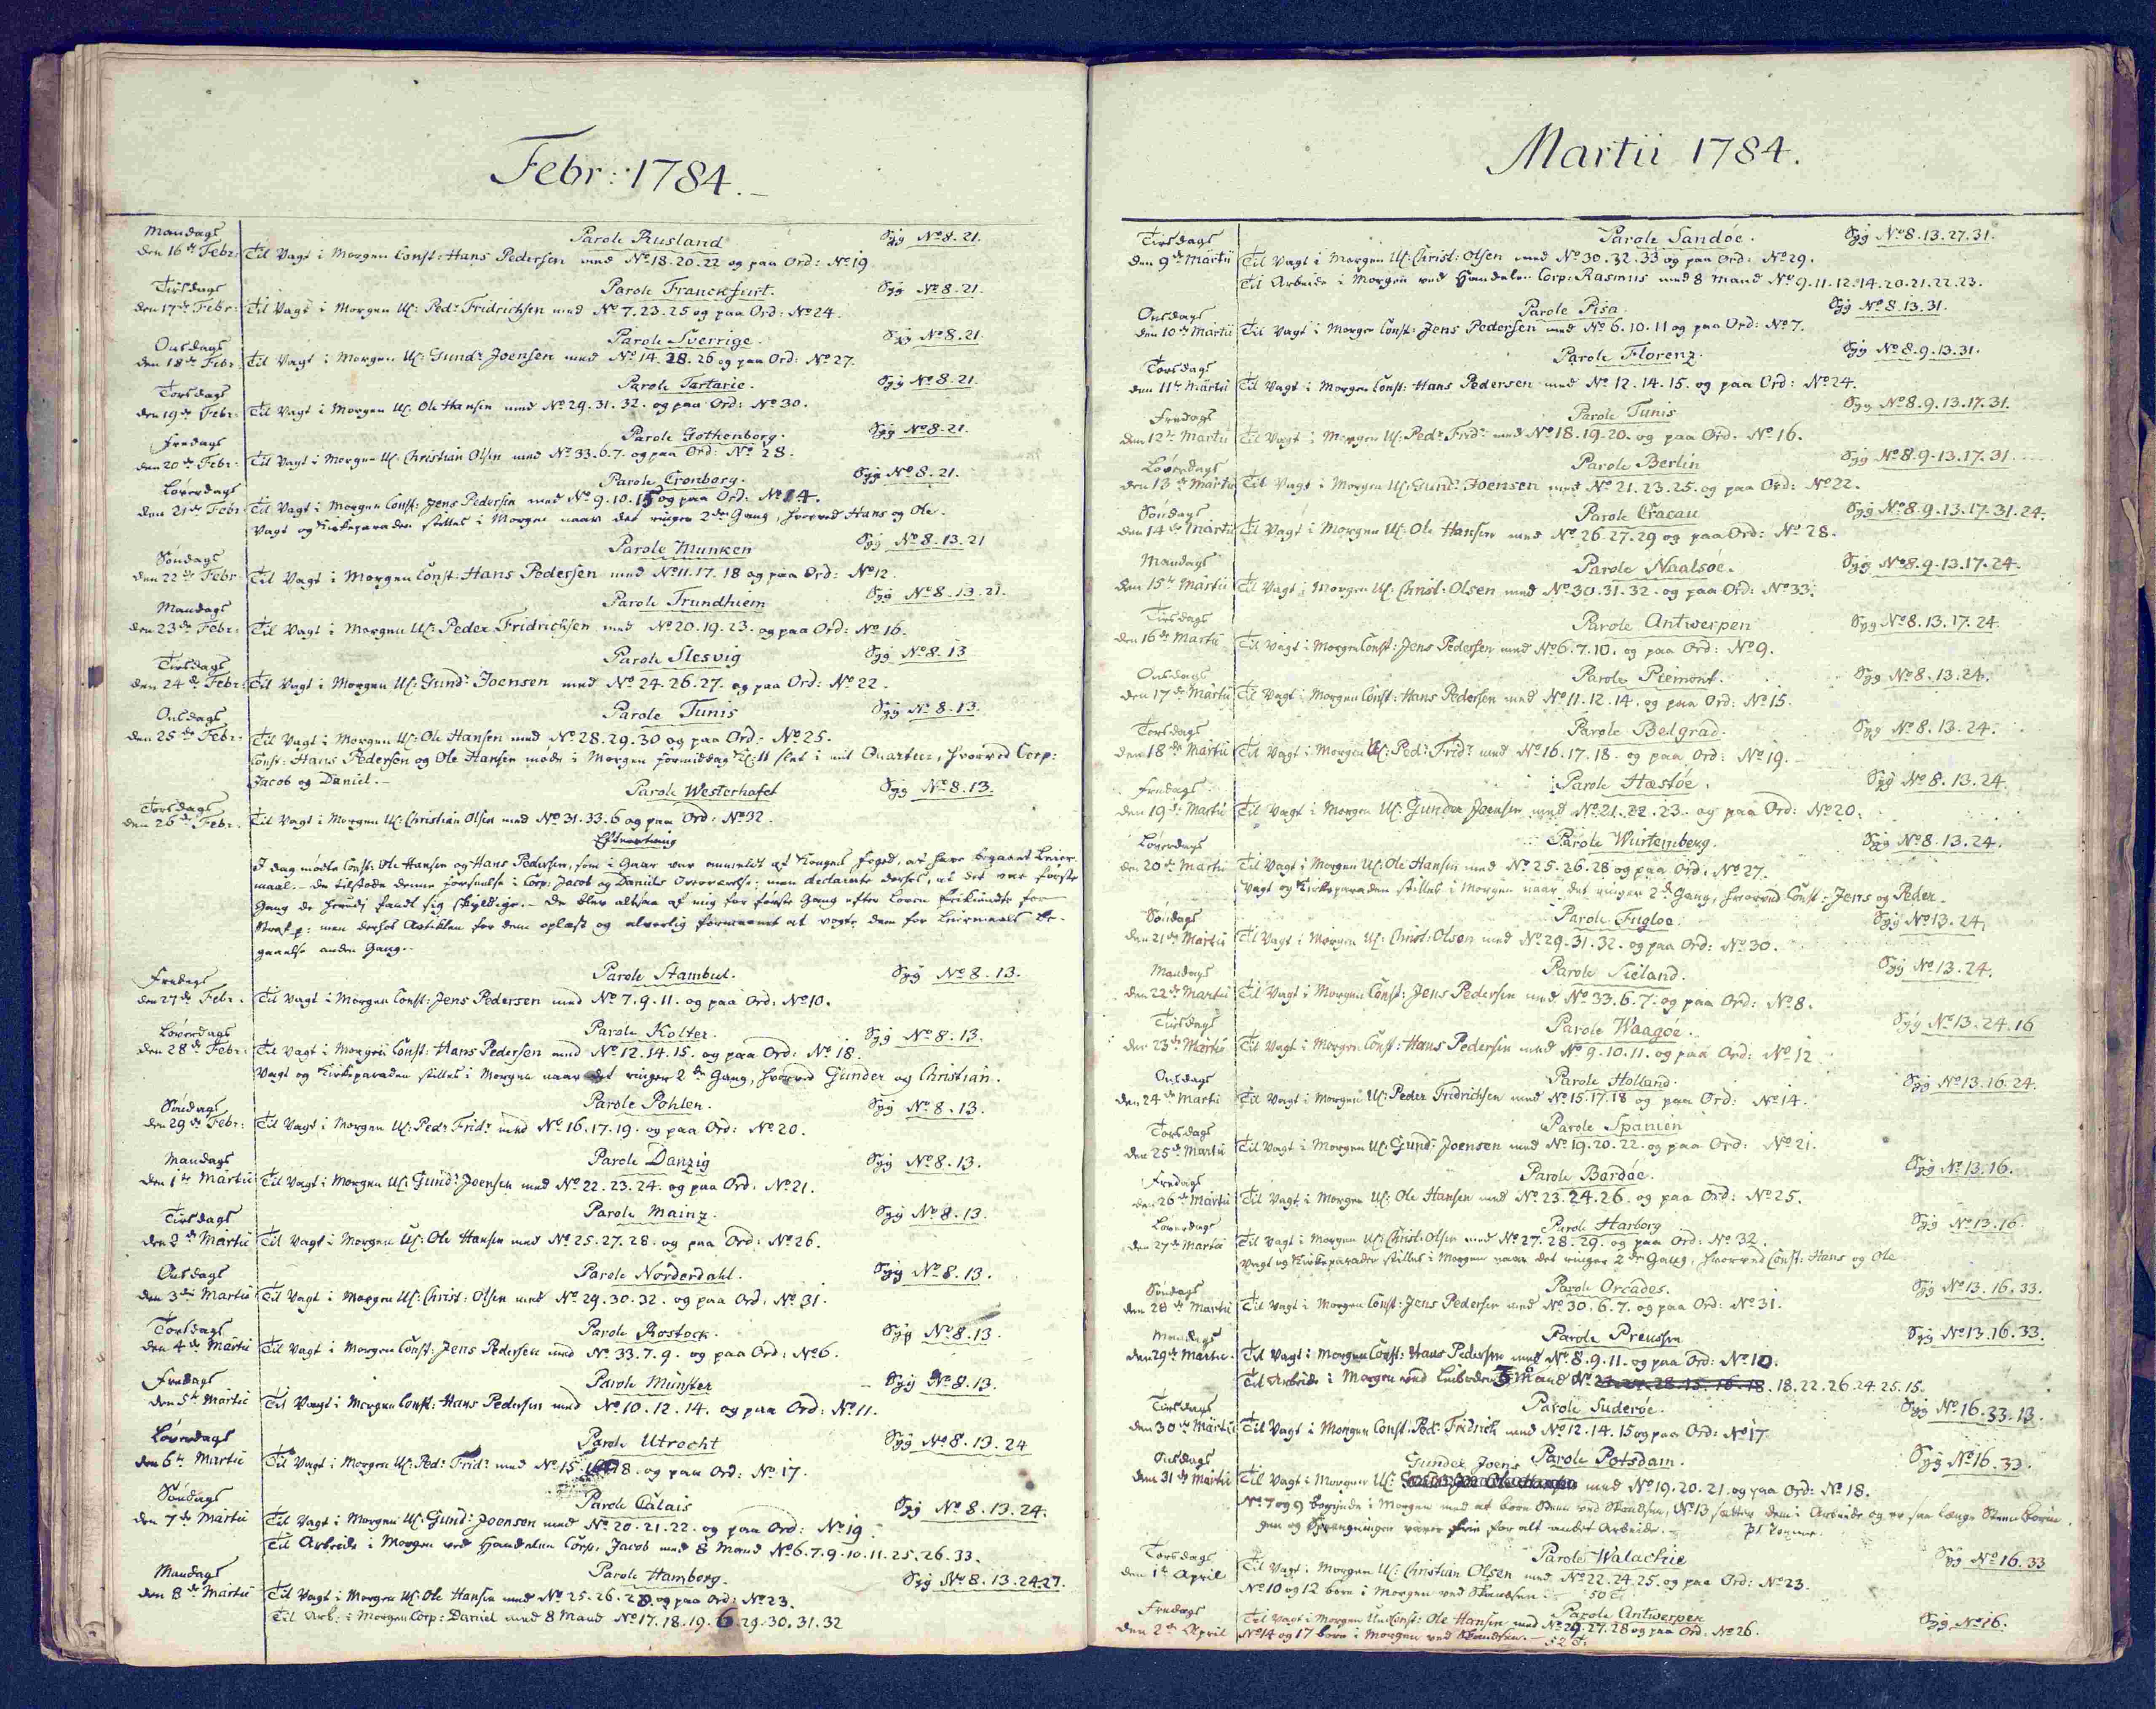 Febr: 1784.
Mandags Parole Rusland Syg No 8. 21.
den 16de Febr: Til Vagt i Morgen Const: Hans Pedersen med No 18. 20. 22 og paa Ord: No 19
Tirsdags Parole Franckfurt. Syg No 8. 21.
den 17de Febr: Til Vagt i Morgen UC: Pedr Fridrichsen med No 7. 23. 25 og paa Ord: No 24.
Onsdags Parole Sverrige. Syg No 8. 21.
den 18de Febr: Til Vagt i Morgen UC: Gundr Joensen med No 14. 28. 26 og paa Ord: No 27.
Torsdags Parole Tartarie. Syg No 8. 21.
den 19de Febr: Til Vagt i Morgen UC: Ole Hansen med No 29. 31. 32. og paa Ord: No 30.
Fredags Parole Gothenborg. Syg No 8. 21.
den 20de Febr: Til Vagt i Morgen UC: Christian Olsen med No 33. 6. 7. og paa Ord: No 28.
Løverdags Parole Cronborg. Syg No 8. 21.
den 21de Febr: Til Vagt i Morgen Const: Jens Pedersen med No 9. 10. 15 og paa Ord: No 14.
Vagt og Kirkeparaden stilles i Morgen naar det ringer 2den Gang, hvorved Hans og Ole.
Søndags Parole Munken Syg No 8. 13. 21
den 22de Febr Til Vagt i Morgen Const: Hans Pedersen med No 11. 17. 18 og paa Ord: No 12.
Mandags Parole Trundhiem Syg No 8. 13. 21.
den 23de Febr: Til Vagt i Morgen UC: Peder Fridrichsen med No 20. 19. 23. og paa Ord: No 16.
Tirsdags Parole Slesvig Syg No 8. 13
den 24de Febr: Til Vagt i Morgen UC: Gundr Joensen med No 24. 26. 27. og paa Ord: No 22.
Onsdags Parole Tunis Syg No 8. 13.
den 25de Febr: Til Vagt i Morgen UC: Ole Hansen med No 28. 29. 30 og paa Ord: No 25.
Const: Hans Pedersen og Ole Hansen møde i Morgen formiddag Kl: 11 slet i mit Quarteer, hvorved Corp:
Jacob og Daniel.
Torsdags Parole Westerhafet Syg No 8. 13.
den 26de Febr. Til Vagt i Morgen UC: Christian Olsen med No 31. 33. 6 og paa Ord: No 32.
Efterretning
I dag mødte Const: Ole Hansen og Hans Pedersen, som i Gaar var anmeldt af Kongens foged, at have begaaet Leier
maal. De tilstode denne forseelse i Corp: Jacob og Daniels Overværelse: men declarerte derhos, at det var første
Gang de herudi fandt sig skyldige. De blev altsaa af mig for første Gang efter Loven frikiendte for
Straf: men derhos Articlen for dem oplæst og alvorlig formaanet at vogte dem for Leiermaals be-
gaaelse anden Gang.
Fredags Parole Stambul. Syg No 8. 13.
den 27de Febr. Til Vagt i Morgen Const: Jens Pedersen med No 7. 9. 11. og paa Ord: No 10.
Løverdags Parole Kolter. Syg No 8. 13.
den 28de Febr: Til Vagt i Morgen Const: Hans Pedersen med No 12. 14. 15. og paa Ord: No 18.
Vagt og Kirkeparaden stilles i Morgen naar det ringer 2den Gang, hvorved Gunder og Christian.
Søndags Parole Pohlen. Syg No 8. 13.
den 29de Febr: Til Vagt i Morgen UC: Pedr Fridr med No 16. 17. 19. og paa Ord: No 20.
Mandags Parole Danzig Syg No 8. 13.
den 1te Martii Til Vagt i Morgen UC: Gundr Joensen med No 22. 23. 24. og paa Ord. No 21.
Tirsdags Parole Mainz. Syg No 8. 13.
den 2de Martii Til Vagt i Morgen UC: Ole Hansen med No 25. 27. 28. og paa Ord: No 26.
Onsdags Parole Norderdahl. Syg No 8. 13.
den 3die Martii Til Vagt i Morgen UC: Christ: Olsen med No 29. 30. 32. og paa Ord: No 31.
Torsdags Parole Rostock. Syg No 8. 13.
den 4de Martii Til Vagt i Morgen Const: Jens Pedersen med No 33. 7. 9. og paa Ord: No 6.
Fredags Parole Münster Syg No 8. 13.
den 5te Martii Til Vagt i Morgen Const: Hans Pedersen med No 10. 12. 14. og paa Ord: No 11.
Løverdags Parole Utrecht Syg No 8. 13. 24
den 6te Martii Til Vagt i Morgen UC: Pedr Fridr med No 15. 18. og paa Ord: No 17.
Søndags Parole Calais Syg No 8. 13. 24.
den 7de Martii Til Vagt i Morgen UC: Gundr Joensen med No 20. 21. 22. og paa Ord: No 19.
Til Arbeide i Morgen ved Handelen Corp. Jacob med 8 Mand No 6. 7. 9. 10. 11. 25. 26. 33.
Mandags Parole Hamborg. Syg No 8. 13. 24. 27.
den 8de Martii Til Vagt i Morgen UC: Ole Hansen med No 25. 26. 28. og paa Ord: No 23.
Til Arb: i Morgen Corp: Daniel med 8 Mand No 17. 18. 19. 6. 29. 30. 31. 32
Martii 1784.
Tirsdags Parole Sandøe. Syg No 8. 13. 27. 31.
den 9de Martii Til Vagt i Morgen UC: Christ: Olsen med No 30. 32. 33 og paa Ord: No 29.
Til Arbeide i Morgen ved Handelen Corp: Rasmus med 8 Mand No 9. 11. 12. 14. 20. 21. 22. 23.
Onsdags Parole Pisa. Syg No 8. 13. 31.
den 10de Martii Til Vagt i Morgen Const: Jens Pedersen med No 6. 10. 11 og paa Ord: No 7.
Torsdags Parole Florenz. Syg No 8. 9. 13. 31.
den 11te Martii Til Vagt i Morgen Const: Hans Pedersen med No 12. 14. 15. og paa Ord: No 24.
Fredags Parole Tunis Syg No 8. 9. 13. 17. 31.
den 12te Martii Til Vagt i Morgen UC: Pedr Fridr med No 18. 19. 20. og paa Ord. No 16.
Løverdags Parole Berlin Syg No 8. 9. 13. 17. 31
den 13de Martii Til Vagt i Morgen UC: Gundr Joensen med No 21. 23. 25. og paa Ord: No 22.
Søndags Parole Cracau Syg No 8. 9. 13. 17. 31. 24.
den 14de Martii Til Vagt i Morgen UC: Ole Hansen med No 26. 27. 29 og paa Ord: No 28.
Mandags Parole Naalsøe. Syg No 8. 9. 13. 17. 24.
den 15te Martii Til Vagt i Morgen UC: Christ: Olsen med No 30. 31. 32. og paa Ord: No 33.
Tirsdags Parole Antwerpen Syg No 8. 13. 17. 24.
den 16de Martii Til Vagt i Morgen Const: Jens Pedersen med No 6. 7. 10. og paa Ord: No 9.
Onsdags Parole Piemont. Syg No 8. 13. 24.
den 17de Martii Til Vagt i Morgen Const: Hans Pedersen med No 11. 12. 14. og paa Ord: No 15.
Torsdags Parole Belgrad. Syg No 8. 13. 24.
den 18de Martii Til Vagt i Morgen UC: Pedr Fridr med No 16. 17. 18. og paa Ord: No 19.
Fredags Parole Hæstøe. Syg No 8. 13. 24
den 19de Martii Til Vagt i Morgen UC: Gunder Joensen med No 21. 22. 23. og paa Ord: No 20.
Løverdags Parole Würtemberg. Syg No 8. 13. 24.
den 20de Martii Til Vagt i Morgen UC: Ole Hansen med No 25. 26. 28 og paa Ord. No 27.
Vagt og Kirkeparaden stilles i Morgen naar det ringer 2de Gang, hvorved Const: Jens og Peder.
Søndags Parole Fugloe. Syg No 13. 24.
den 21de Martii Til Vagt i Morgen UC: Christ: Olsen med No 29. 31. 32. og paa Ord: No 30.
Mandags Parole Sieland. Syg No 13. 24.
den 22de Martii Til Vagt i Morgen Const: Jens Pedersen med No 33. 6. 7. og paa Ord: No 8.
Tirsdags Parole Waagøe. Syg No 13. 24. 16
den 23de Martii Til Vagt i Morgen Const: Hans Pedersen med No 9. 10. 11. og paa Ord: No 12
Onsdags Parole Holland. Syg No 13. 16. 24.
den 24de Martii Til Vagt i Morgen UC: Peder Fridrichsen med No 15. 17. 18 og paa Ord: No 14.
Torsdags Parole Spanien
den 25de Martii Til Vagt i Morgen UC: Gundr Joensen med No 19. 20. 22. og paa Ord: No 21.
Fredags Parole Bordøe. Syg No 13. 16.
den 26de Martii Til Vagt i Morgen UC: Ole Hansen med No 23. 24. 26. og paa Ord: No 25.
Løverdags Parole Harborg Syg No 13. 16.
den 27de Martii Til Vagt i Morgen UC: Christ: Olsen med No 27. 28. 29. og paa Ord: No 32.
Vagt og Kirkeparaden stilles i Morgen naar det ringer 2den Gang, hvorved Const: Hans og Ole
Søndags Parole Orcades. Syg No 13. 16. 33.
den 28de Martii Til Vagt i Morgen Const: Jens Pedersen med No 30. 6. 7. og paa Ord: No 31.
Mandags Parole Preussen Syg No 13. 16. 33.
den 29de Martii. Til Vagt i Morgen Const: Hans Pedersen med No 8. 9. 11. og paa Ord: No 10.
Til Arbeide i Morgen ved Mand No 18. 22. 26. 24. 25. 15.
Tirsdags Parole Suderøe. Syg No 16. 33. 13.
den 30te Martii Til Vagt i Morgen Const. Pedr Fridrich med No 12. 14. 15 og paa Ord: No 17
Onsdags Gunder Joens Parole Potsdam. Syg No 16. 33.
den 31te Martii Til Vagt i Morgen UC: med No 19. 20. 21. og paa Ord: No 18.
No 7 og 9 begynde i Morgen med at bore Steen ved Skandsen, No 13 sætter dem i Arbeide og er saa længe Steen borin
gen og Sprengningen varer frie for alt andet Arbeide.
Torsdags Parole Walachie Syg No 16. 33
den 1te April Til Vagt i Morgen UC: Christian Olsen med No 22. 24. 25. og paa Ord: No 23.
No 10 og 12 bore i Morgen ved Skandsen 50
Fredags Parole Antwerpen Syg No 16.
den 2de April Til Vagt i Morgen UnConst: Ole Hansen med No 29. 27. 28 og paa Ord: No 26.
No 14 og 17 bore i Morgen ved Skandsen. 52